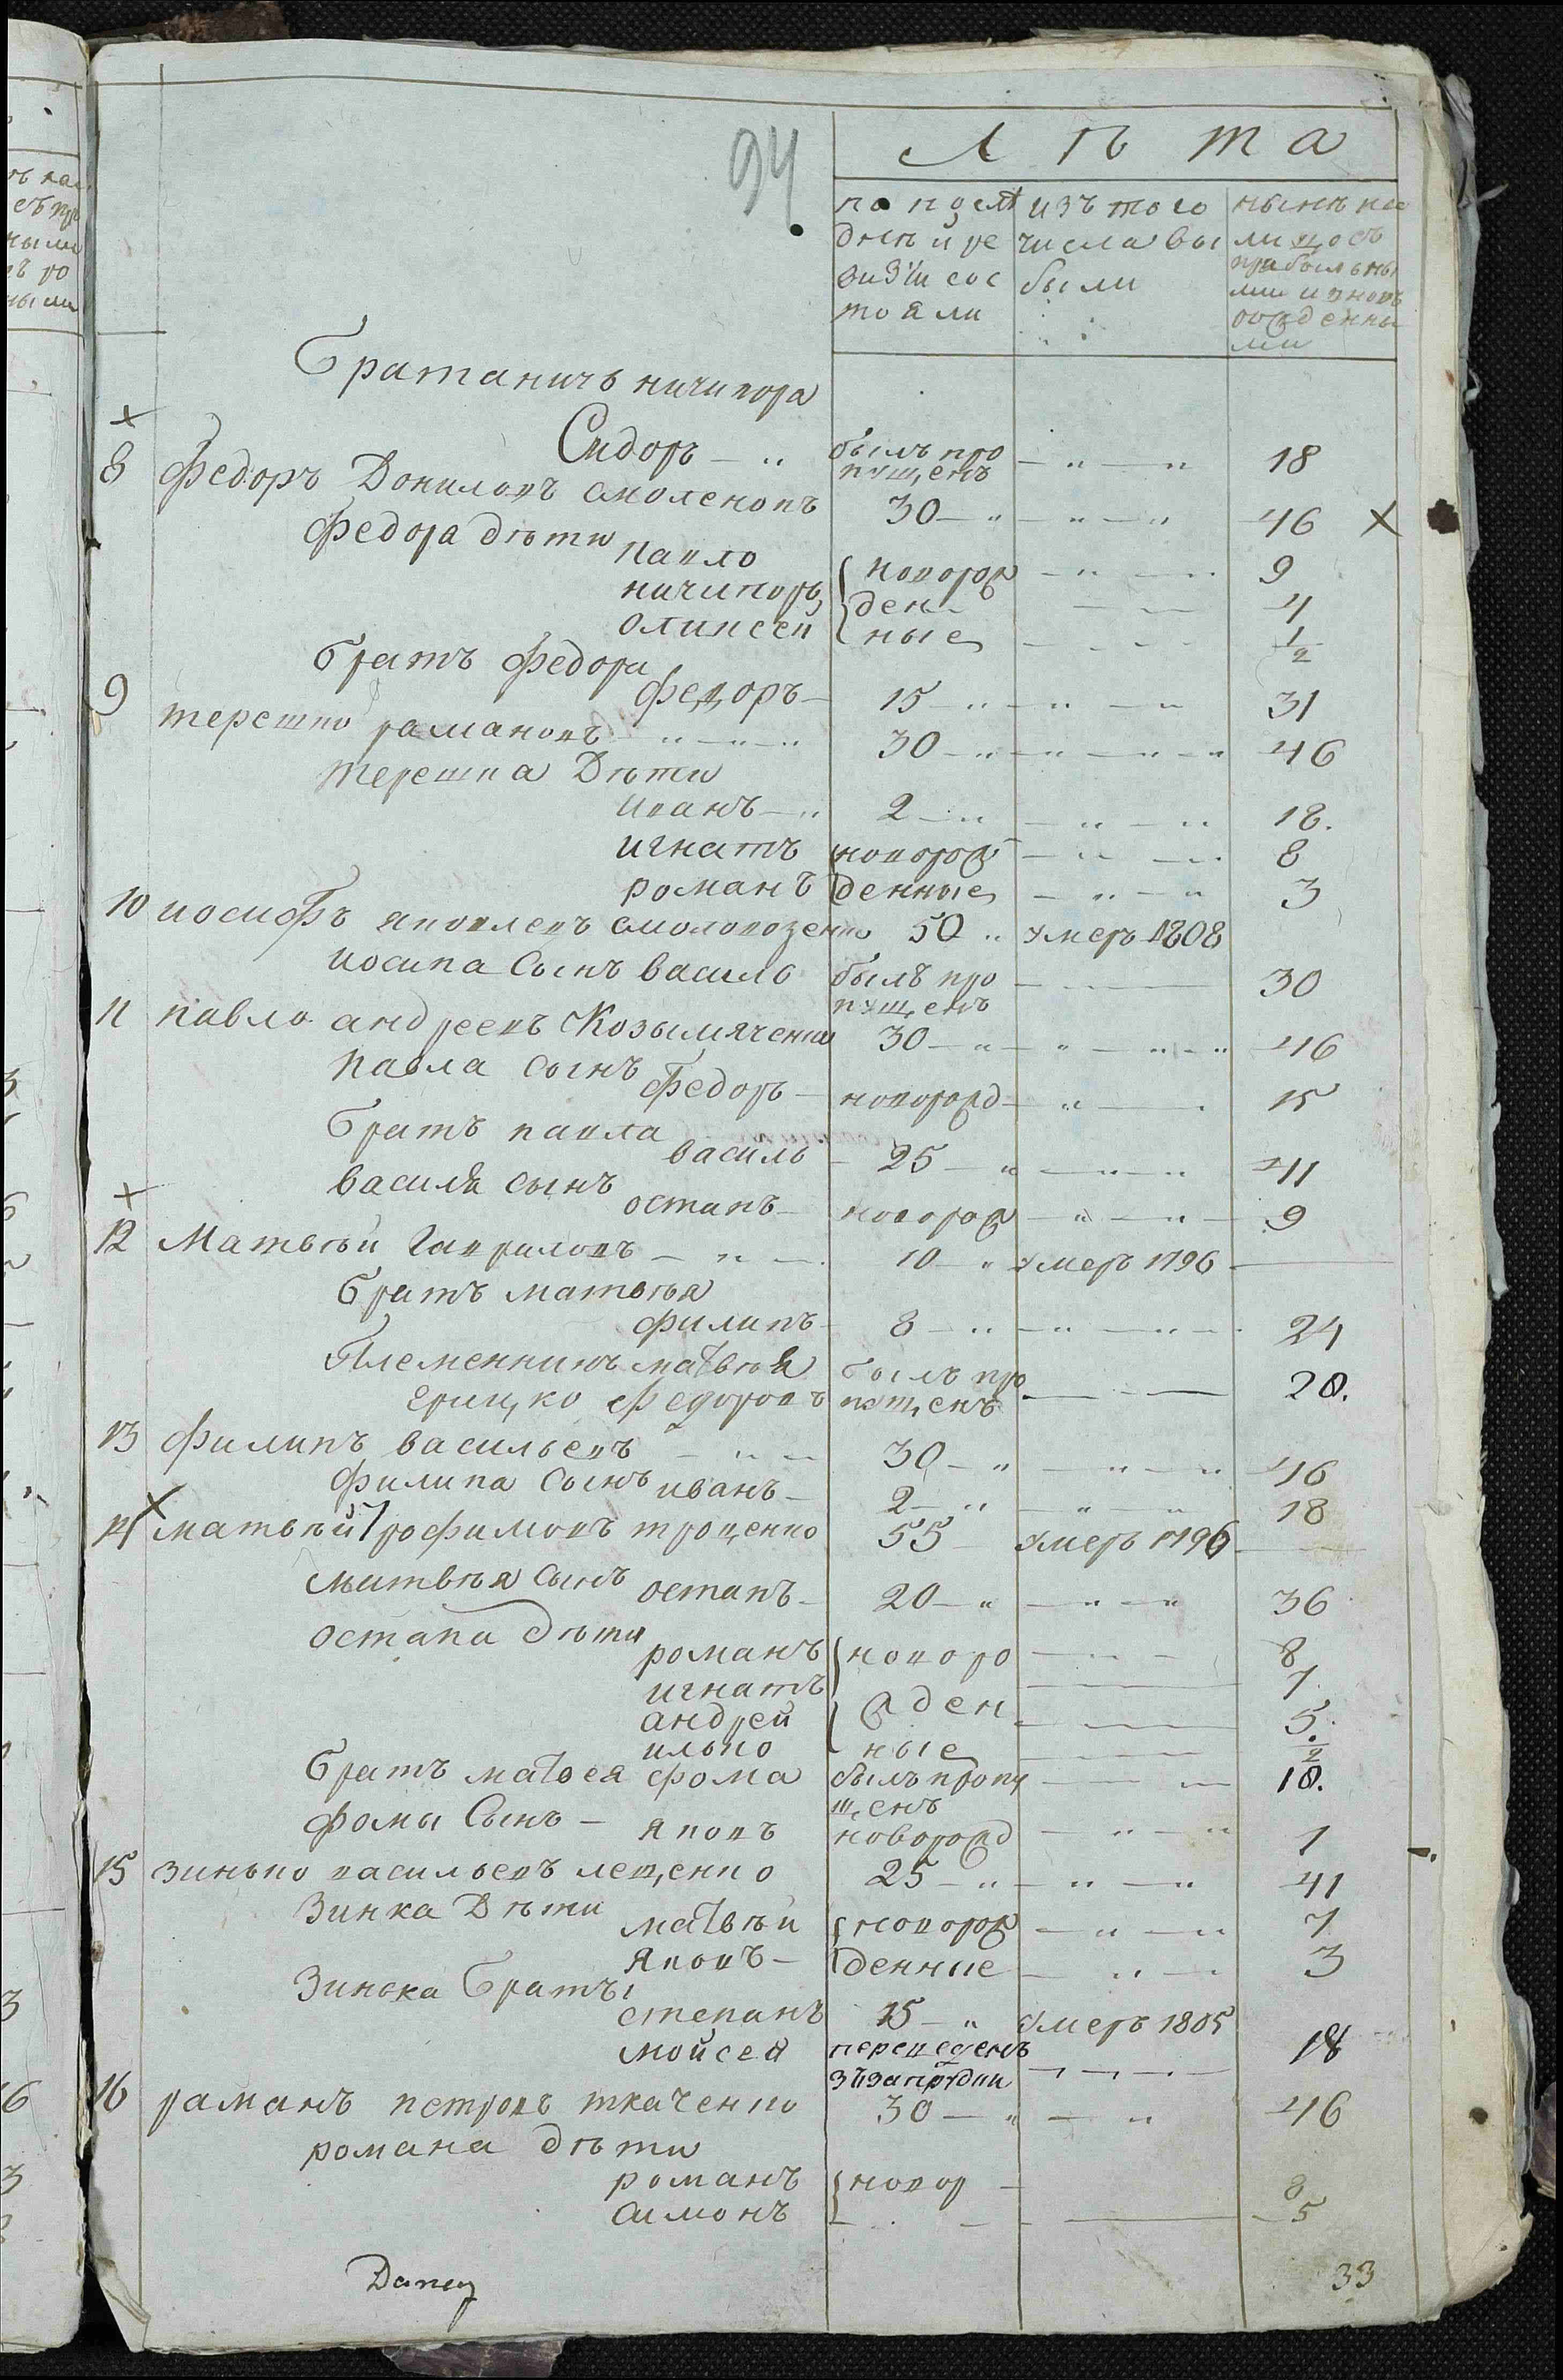 94
Лѣта
по послѣ
дней ре
визіи сос
тояли
изъ того
числа вы
были
нынѣ на
лицо съ
прибылны
ми и вновь
рожденны
ми
Братаничъ ничипора
Сидоръ был про пущенъ 18
8 Федоръ Дониловъ смоленовъ 30 46
Федора дѣти павло новорож 9
ничипоръ ден 4
оликсей ные 1/2
братъ федора
федоръ 15 31
9 терешко рамановъ 30 46
терешка Дѣти
иванъ 2 18.
игнатъ новорож 8
романъ денные 3
10 иосифъ яковлевъ 50 умеръ 1808
иосипа Сынъ василь былъ про пущенъ 30
11 павло андреевъ Козымяченко 30 46
павла сынъ Федоръ новорожд 15
братъ павла василь 25 41
василя сынъ остапъ новорож 9
12 Матвѣй Гавриловъ 10 умеръ 1796
братъ матвѣя
филипъ 8 24
племенникъ матвѣя былъ про
грицко федоровъ пущенъ 20.
13 филипъ васильевъ 30 46
филипа сынъ иванъ 2 18
14 матвѣй Трофимовъ троценко 55 умеръ 1796
матвѣя сынъ остапъ 20 36
остапа дѣти
романъ новоро 8
игнатъ 7
андрей жден 5.
илько ные 1/2
братъ матвея фома былъ пропу щенъ 18.
фомы Сынъ яковъ новорожд 1
15 зинько васильевъ лещенко 25 41
Зинка Дѣти матвѣй новорож 7
яковъ денные 3
Зинька братъ
степанъ 15 умеръ 1805
мойсей переведенъ 18
16 раманъ петровъ ткаченко 30 46
романа дѣти
романъ новор 8
симонъ 5
33